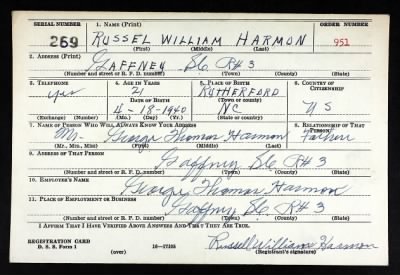 SERIAL NUMBER 1. NAME (Print) ORDER NUMBER
269 RUSSEL WILLIAM HARMON 951
(First) (Middle) (Last)
2. ADDRESS (Print)
GAFFNEY SC R#3
(Number and street or R. F. D. number) (Town) (County) (State)
3. TELEPHONE 4. AGE IN YEARS 5. PLACE OF BIRTH 6. COUNTRY OF CITIZENSHIP
yes 21 RUTHERFORD
DATE OF BIRTH (Town or county)
4-18-1940 NC U S
(Exchange) (Number) (Mo.) (Day) (Yr.) (State or country)
7. NAME OF PERSON WHO WILL ALWAYS KNOW YOUR ADDRESS 8. RELATIONSHIP OF THAT PERSON
Mr. George Thomas Harmon Father
(Mr., Mrs., Miss) (First) (Middle) (Last)
9. ADDRESS OF THAT PERSON
Gaffney SC R#3
(Number and street or R. F. D. number) (Town) (County) (State)
10. EMPLOYER'S NAME
George Thomas Harmon
11. PLACE OF EMPLOYMENT OR BUSINESS
Gaffney SC R#3
(Number and street or R. F. D. number) (Town) (County) (State)
I AFFIRM THAT I HAVE VERIFIED ABOVE ANSWERS AND THAT THEY ARE TRUE.
REGISTRATION CARD
D. S. S. Form 1 16-17105 Russell William Harmon
(over) (Registrant's signature)